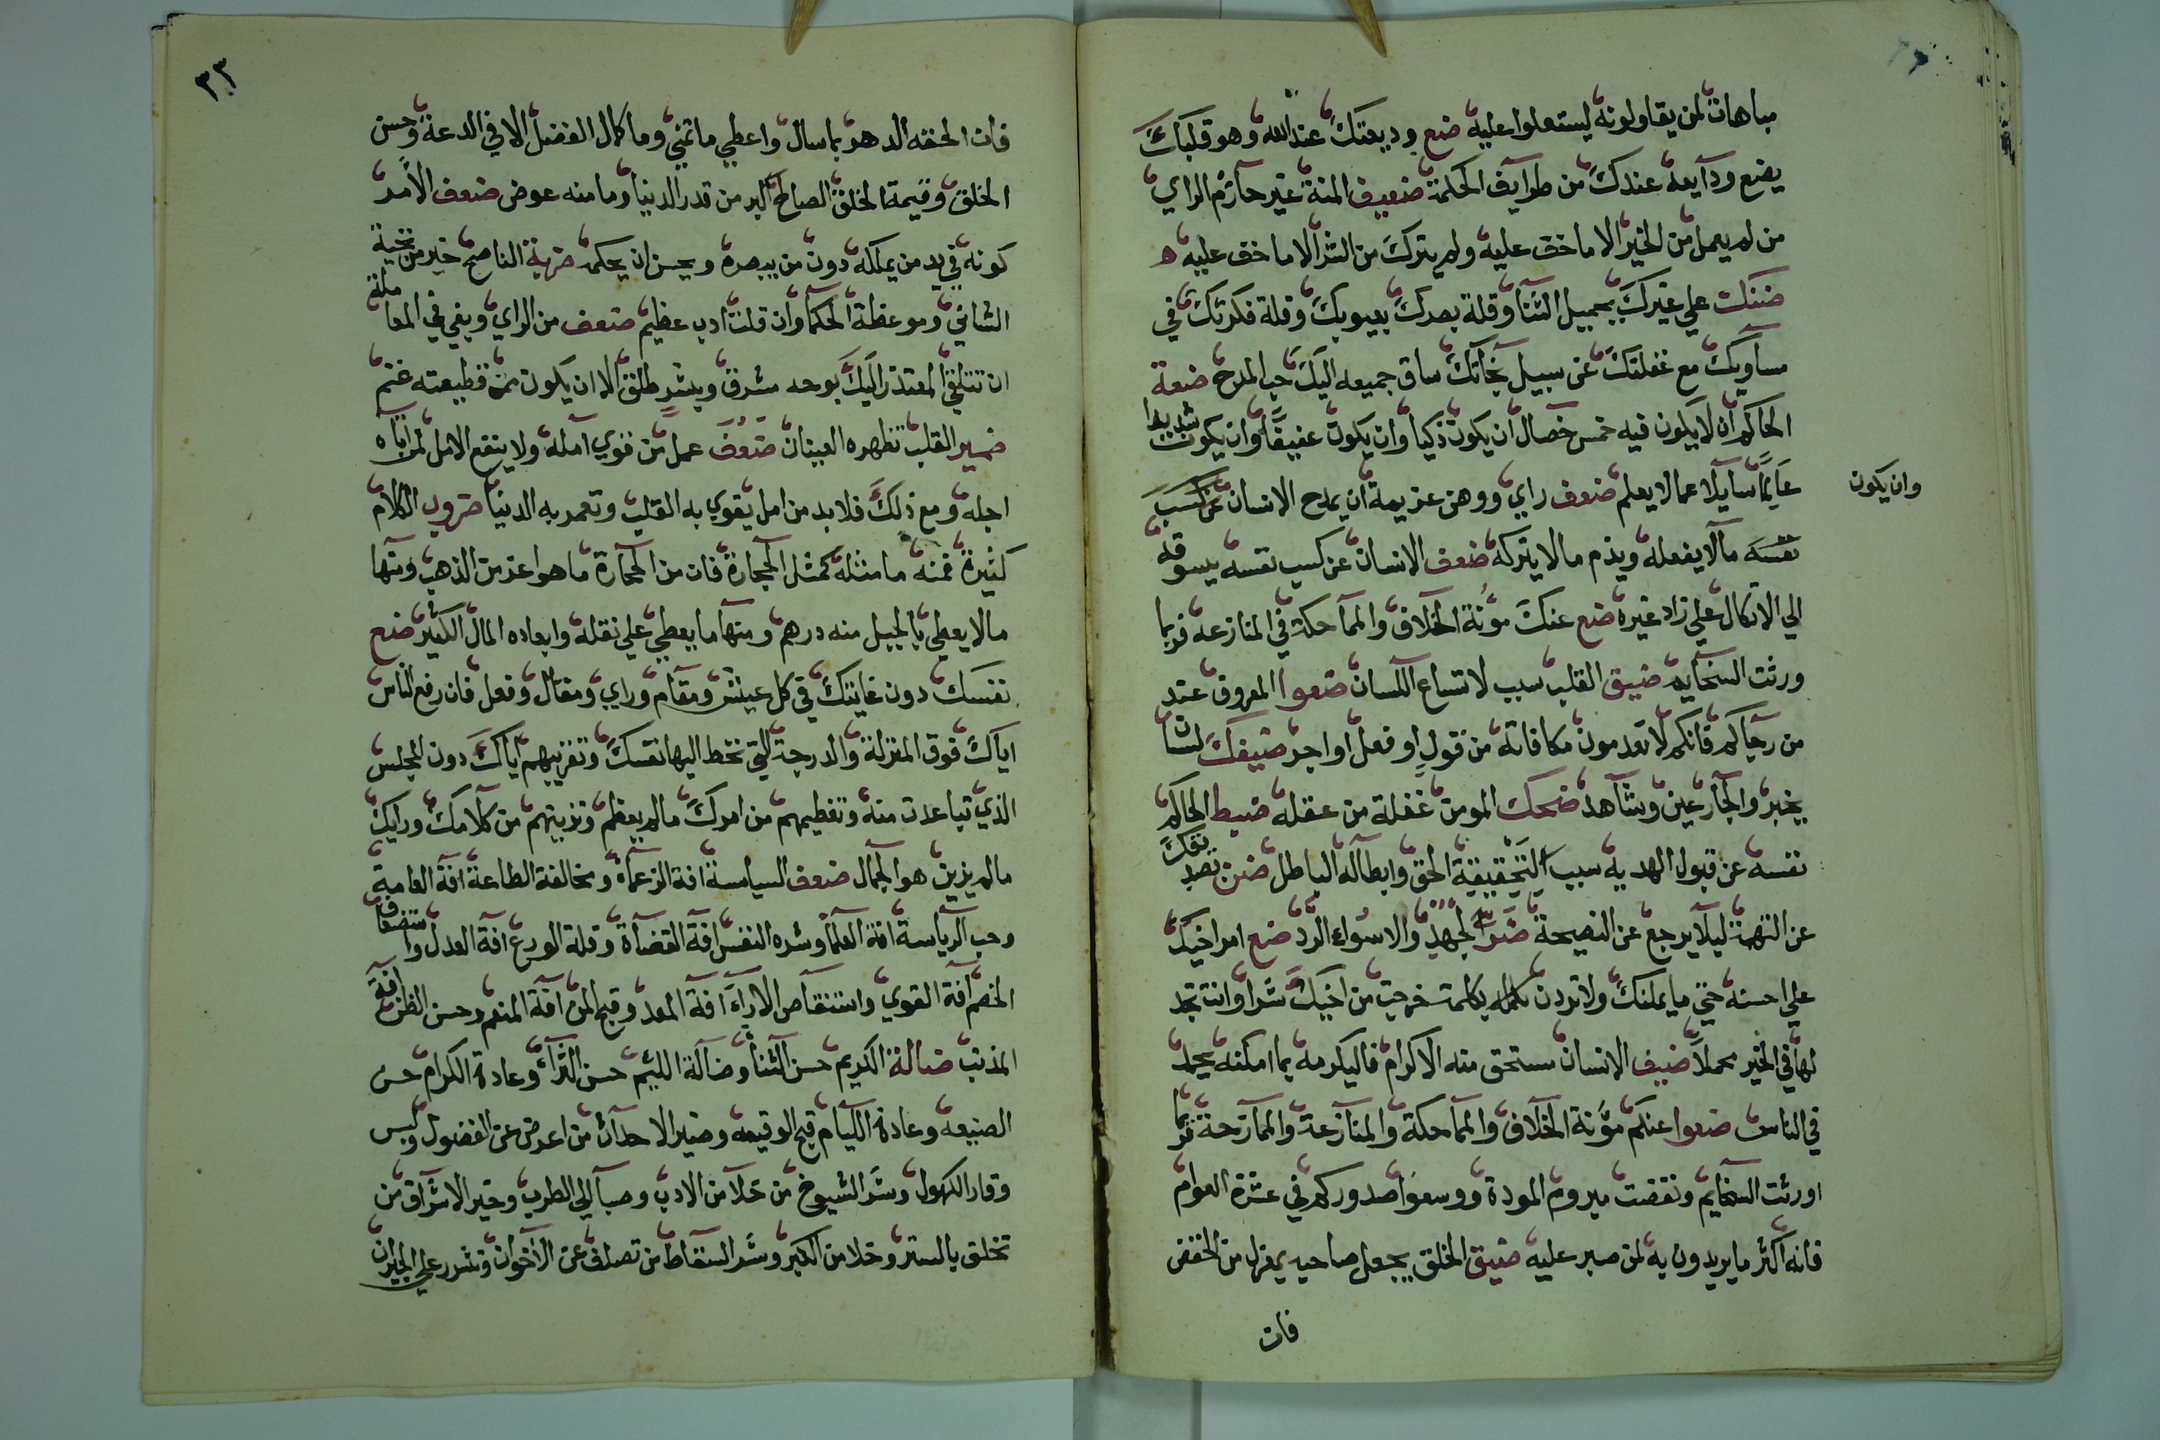 مباهاة لمن يقاولونه ليستعلوا عليه ضع وديعتك عند الله وهو قلبك
يضع ودايعه عندك من طوايف الحكمة ضعيف المنة غير حازم الراي
من لم يعمل من الخير الا ما خف عليه ولم يترك من الشر الا ما خف عليه ه
ضنك علي غيرك بجميل الثنا وقلة بصرك بعيوبك وقلة فكرتك في
مساويك مع غفلتك عن سبيل نجاتك ساق جميعه اليك حب المدح ضعة
الحاكم ان لا يكون فيه خمس خصال ان يكون ذكيا وان يكون عفيفا وان يكون شديدا
وان يكون
عالما سايلا عما لا يعلم ضعف راي ووهن عزيمة ان يمدح الانسان عن كسب
نفسه ما لا يفعله ويذم ما لا يتركه ضعف الانسان عن كسب نفسه يسوقه
الي الاتكال علي زاد غيره ضع عنك مؤنة الخلاف والمماحكة في المنازعه فربما
ورثت السخايم ضيق القلب سبب لاتساع اللسان ضعوا المعروف عند
من رجاكم فانكم لا تعدمون مكافاته من قول او فعل او اجر ضيفك لسان
يخبر والجار عين وشاهد ضحك المومن غفلة من عقله ضبط الحاكم
نفسه عن قبول الهديه سبب لتحقيقه الحق وابطاله الباطل ضن
عن التهمة ليلا يرجع عن النصيحة ضر الجهد والاسواء الرد ضع امر اخيك
علي احسنه حتي ما يملنك ولا تردن بكلمة خرجت من اخيك شرا وانت تجد
لها في الخير محملا ضيف الانسان مستحق منه الاكرام فاليكرمه بما امكنه يجل
في الناس ضعوا عنكم مؤنة الخلاف والمماحكة والمنازعة والممازحة فربما
اورثت السخايم ونقضت مبروم المودة ووسعوا صدوركم في عشرة العوام
فانه اكثر ما يريدون به لمن صبر عليه ضيق الخلق يجعل صاحبه بمعزل من الخفض
فان
٣٣
فان الحفه الدهر بما سال واعطي ما تمني وما كمال الفضل الا في الدعة وحسن
الخلق وقيمة الخلق الصالح اكبر من قدر الدنيا وما منه عوض ضعف الامر
كونه في يد من يملكه دون من يبصره ويحسن ان يحكمه ضربة الناصح خير من تحية
الشاني وموعظة الحكما وان قلت ادب عظيم ضعف من الراي وبغي في المعاملة
ان تتلقي المعتذر اليك بوجه مشرق وبشر طلق الا ان يكون ممن قطيعته غنم
ضمير القلب تظهره العينان ضعف عمل من قوي امله ولا ينفع الامل لمن اتاه
اجله ومع ذلك فلا بد من امل يقوي به القلب وتعمر به الدنيا ضروب الكلام
كثيرة فمنه ما مثله كمثل الحجارة فان من الحجارة ما هو اعز من الذهب ومنها
ما لا يعطي بالجبل منه درهم ومنها ما يعطي علي نقله وابعاده المال الكثير ضع
نفسك دون غايتك في كل عيش ومقام وراي ومقال وفعل فان رفع الناس
اياك فوق المنزلة والدرجة التي تحط اليها نفسك وتقريبهم اياك دون المجلس
الذي تباعدت منه وتعظيمهم من امرك ما لم يعظم وتزيينهم من كلامك ورايك
ما لم يزين هو الجمال ضعف السياسة افة الزعماء ومخالفة الطاعة افة العامة
وحب الرياسة افة العلما وشره النفس افة القضاة وقلة الورع افة العدل واستضعاف
الخصم افة القوي واستنقاص الاراء افة المعد وقبح المن افة المنعم وحسن الظن افة
المذنب ضالة الكريم حسن الثنا وضالة اللئيم حسن الثراء وعادة الكرام حسن
الصنيعه وعادة الليام قبح الوقيعه وخير الاحداث من اعرض عن الفضول ولبس
وقار الكهول وشر الشيوخ من خلا من الادب وصبا الي الطرب وخير الاشراف من
تخلق بالستر وخلا من الكبر وشر السقاط من تصلف عن الاخوان وتشرر علي الجيران